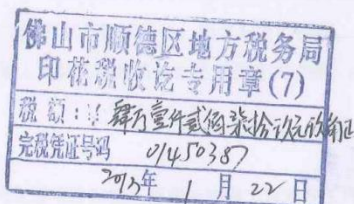 佛山市顺德区地方税务局
印花税收讫专用章(7)
税额:¥ 肆万壹仟贰佰柒拾
完税凭证号码 01450387
2013年 1 月 22 日